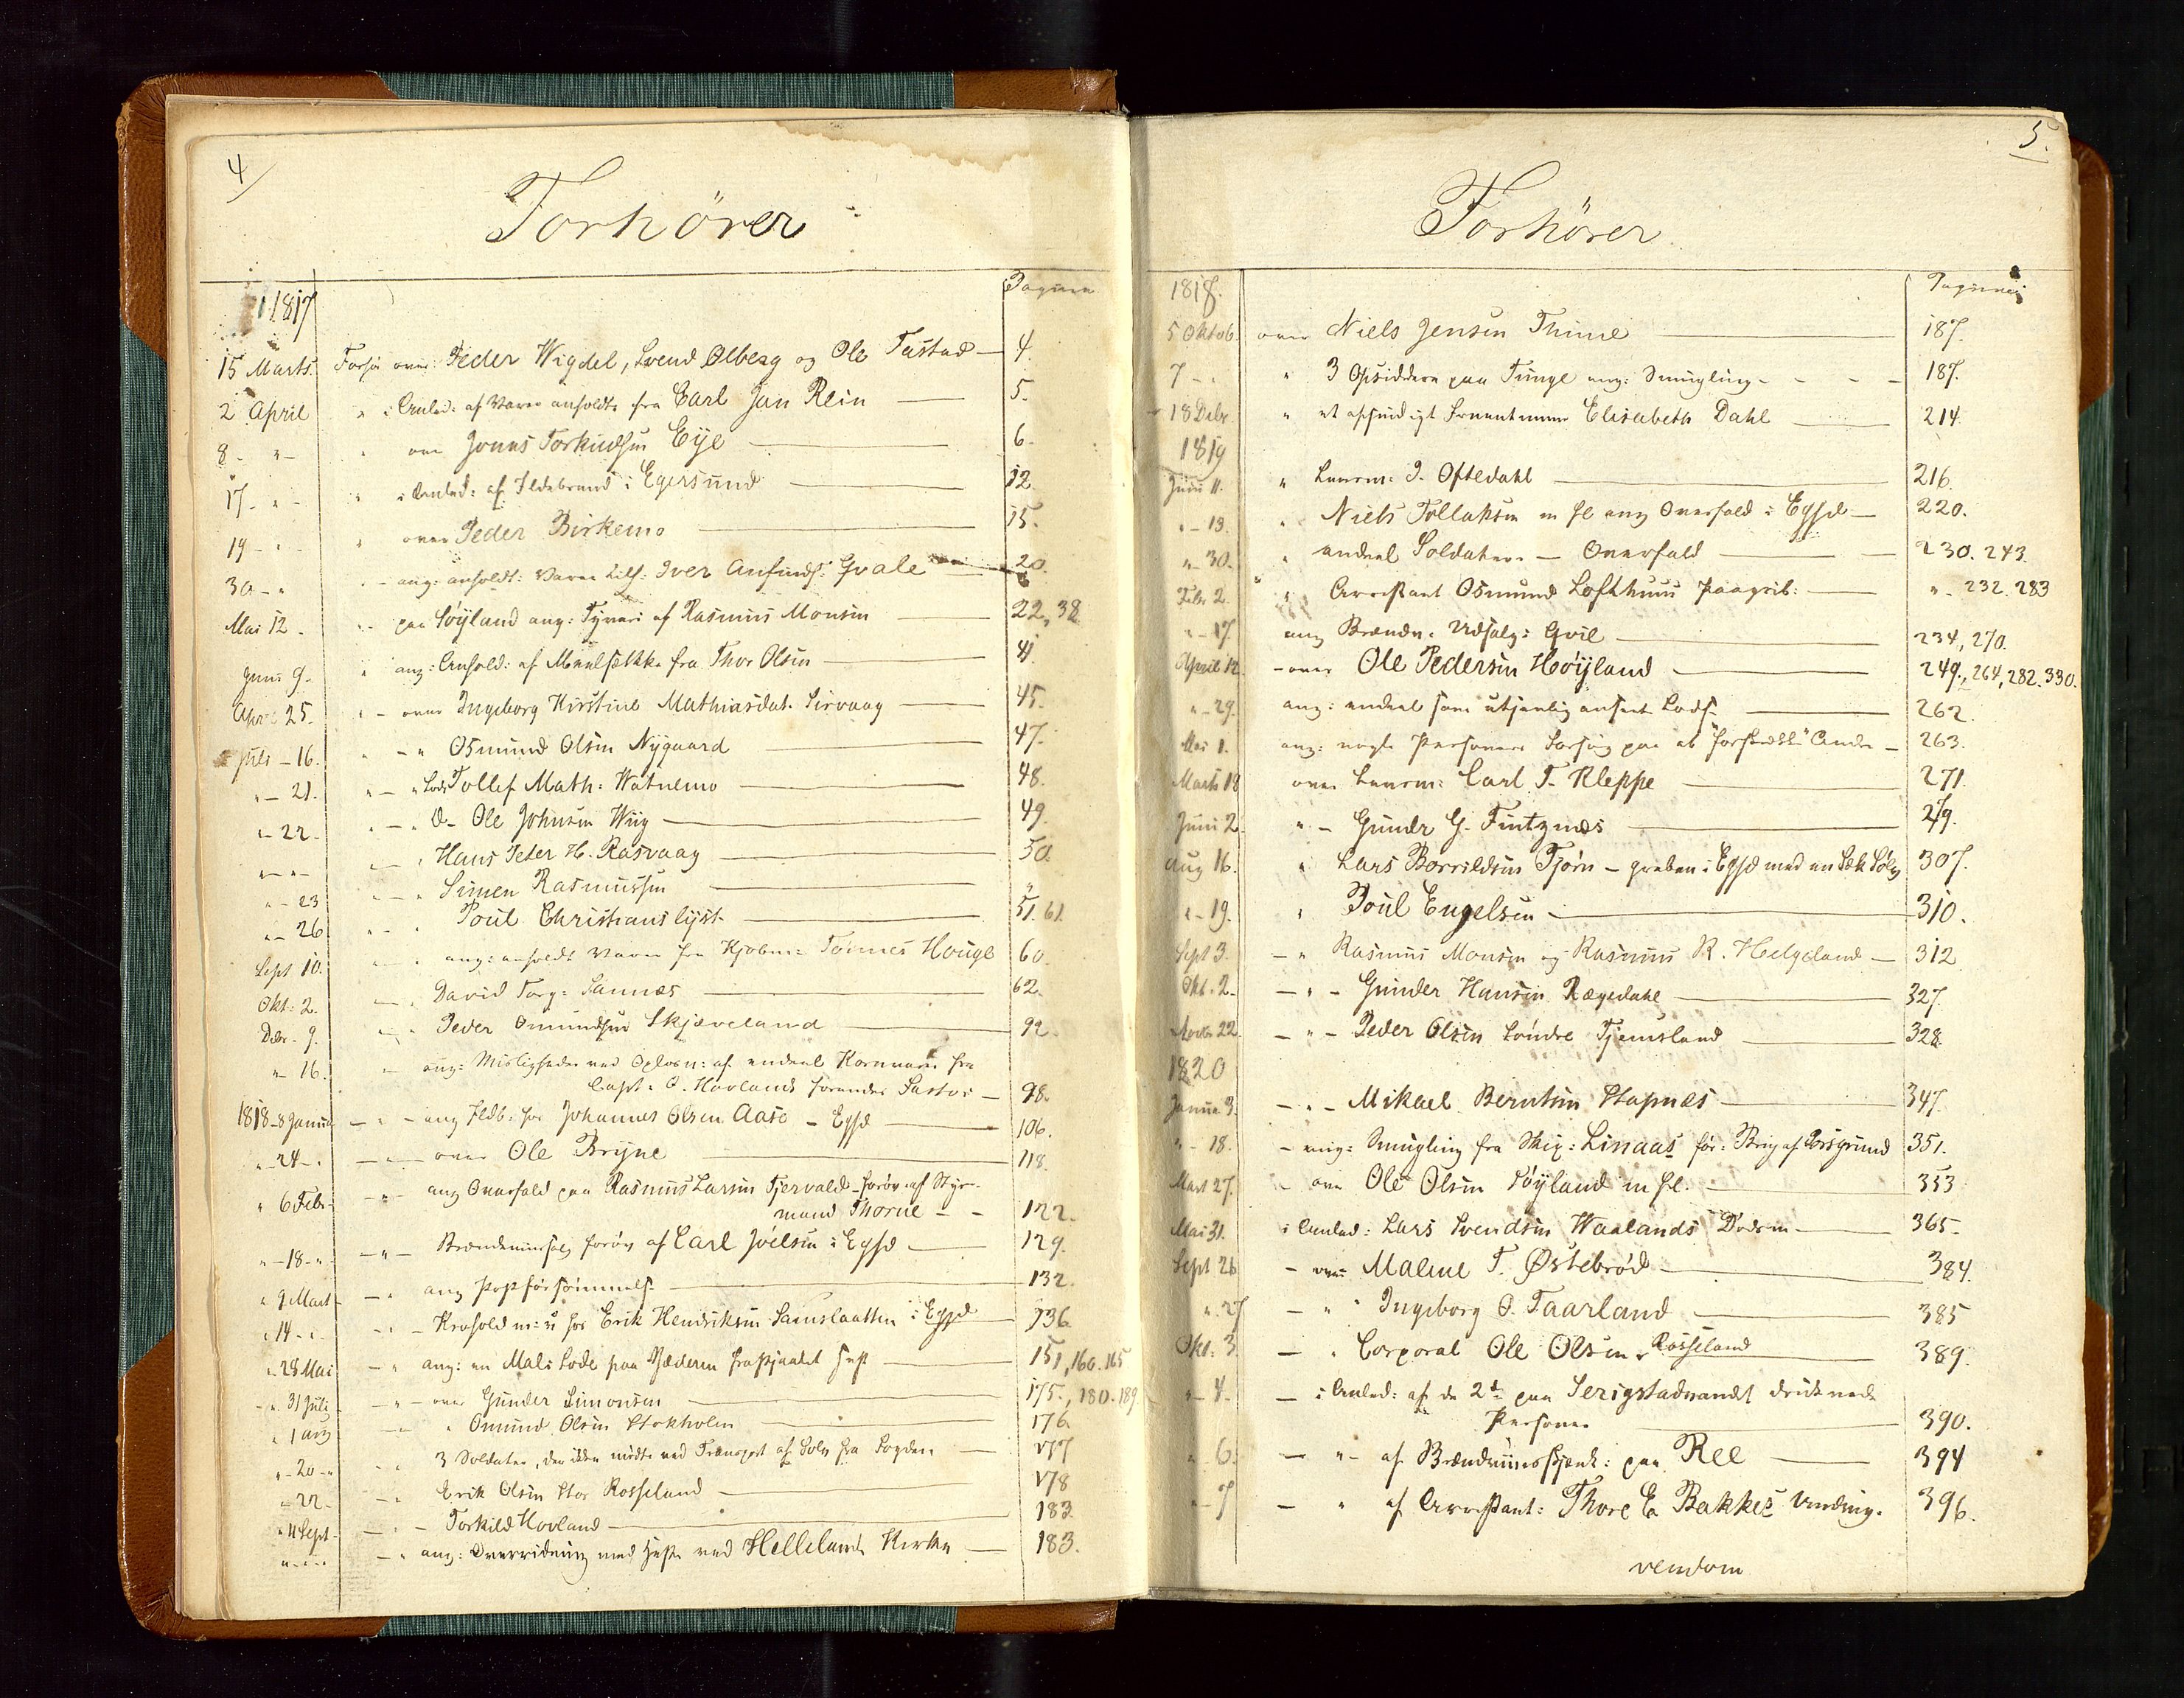 4/
Forhörer
Pagina
1817
15 Marts. Forhör over Peder Wigdel, Svend Olberg og Ole Tastad — 4.
2 April " i Anled: af Varer anholdte fra Carl Jan Rein — 5.
8 - " - " over Jonas Torkildsen Eije — 6.
17 - " - " i Anled: af Ildebrand i Egersund — 12.
19 - " - " over Peder Birkemo — 15.
30 - " " - ang: anholdt: Varer tilh: Iver Anfinds: Qvale — 20.
Mai 12 - " - paa Söyland ang: Tyveri af Rasmus Monsen — 22, 38
Juni 9 - " ang: Anhold: af Meelsække fra Thor Olsen — 41.
Apr 25. " - over Ingeborg Kirstine Mathiasdat. Sirvaag — 45.
Juli - 16. " - " Osmund Olsen Nygaard — 47.
" - 21. " - " Lods Tollef Math: Watnemo — 48.
" - 22 - " - " D - Ole Johnsen Wiig — 49.
" - " - " - " Hans Peder H. Rasvaag — 50.
" - 23 " - " Simen Rasmussen —
" - 26 " - " Poul Christianslyst — 51. 61.
Sept 10. " - " ang: anholdt Varer fra Kjøbm: Tönnes Houge 60.
Okt: 2. — " David Torg: Sannes — 62.
Debr. 9. " - " Peder Omundsen Skjæveland — 92.
" - 16. " ang: Misligheder ved Oplosn: af endeel Kornvarer fra
Capt: O. Hovlands förende: — 98.
1818 - 8 Januar — " - ang Ildb: hos Johannes Olsen Aase - Egsd — 106.
" - 24 - " — " - over Ole Bryne — 118.
" 6 Febr - " - ang Overfald paa Rasmus Larsen Tjervald - forøv. af Styr-
mand Thorne - - 122.
" - 18 - " - — " - Brændeviinssalg forøv af Carl Joelsen i Egsd — 129.
" 9 Mart — " ang Postforsömmelse — 132.
" 14 - " - " - Krohold m: v hos Erik Hendriksen Samslaatten i Egsd — 136.
" 28 Mai — " ang: en Mali Lode paa Jæderen frastjaalet Hest — 151, 160. 165
" 31 Juli — " - over Gunder Simonsen — 175., 180. 189
" 1 Aug — " Omund Olsen Stokholm — 176
" - 20 - " - " 3 Soldater, der ikke mödte ved Transport af Sölv fra Sogden — 177
" - 22 - — " Erik Olsen Stor Rosseland — 178
" 4 Sept - — " - Torkild Hovland — 183.
" - " - " — " ang: Overridning med Heste ved Hellelands Kirke — 183.
5.
Forhörer
Pagina
1818.
5 Oktob. over Niels Jensen Thime — 187.
7 - " " 3 Opsiddere paa Tunge ang: Smugling - - - - 187.
- 18 Debr " et afsindigt Fruentimmer Elisabeth Dahl — 214
1819
Juni 11. " Lensm: J. Oftedahl — 216.
" - 13. " Niels Tollaksen m fl ang Overfald i Egsd — 220.
" - 30. " endeel Soldaters — Overfald — 230. 243
Febr 2 " Arrestant Osmund Lofthuus Paagrib: — " - 232. 283
" - 17. ang Brændv: Udsalg: Gvil — 234, 270.
April 12 - over Ole Pedersen Höyland — 249., 264, 282. 330.
" - 29. ang: endeel som utjenlig anseet Lods — 262
Mai 1. ang: nogle Personers Forsög paa at "forstrekke" Andre — 263.
Marts 18 over Lensm: Carl T. Kleppe — 271
Juni 2. " - Gunder G. Fintznæs — 279.
Aug 16. " Lars Borrildsen Tjörn - greben i Egsd med en Sæk Sölv 307.
" - 19. " Poul Engelsen — 310.
Sept 3. — " Rasmus Monsen og Rasmus R. Helgeland — 312
Okt. 2 - — " - Gunder Hansen Rægedahl — 327.
Novbr 22 — " - Peder Olsen Söndre Tjemsland — 328.
1820
Januar 3. — " - Mikael Berntsen Stapnæs — 347.
" - 18. - ang: Smugling fra Skip: Linaas för: Brig af Porsgrund 351.
Mart 27. - over Ole Olsen Söyland m fl. — 353
Mai 31. i Anled: Lars Svendsen Waalands Död — 365 -
Sept 26 - over Malene T. Østebröd — 384.
" 27 — " " Ingeborg O. Taarland — 385
Okt: 3 — " Corporal Ole Olsen Rosseland — 389.
" - 4. — i Anled: af de 2de paa Serigstadvandet druknede
Personer — 390.
" - 6. — " - af Brændeviinsskjænk: paa Ree — 394
" - 7 — " af Arrestant: Thore E. Bakkes Undvig. 396.
vendom